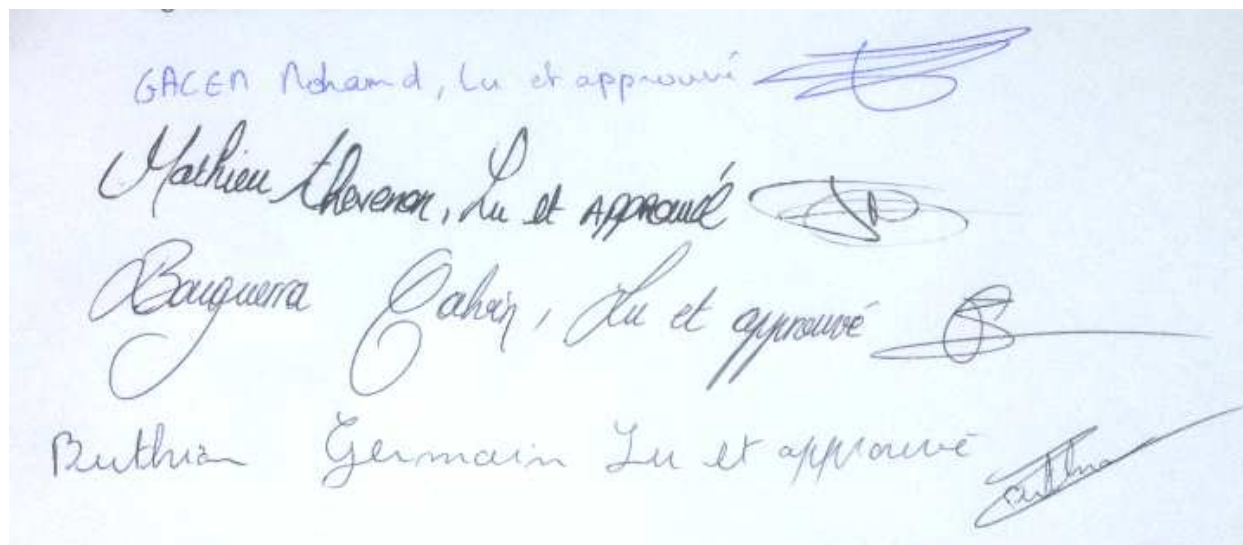 GACEM Mohamd, lu et approuvé
Mathieu Thevenon, Lu et Approuvé
Bouguerra Calvin, Lu et approuvé
Buthion Germain Lu et approuvé